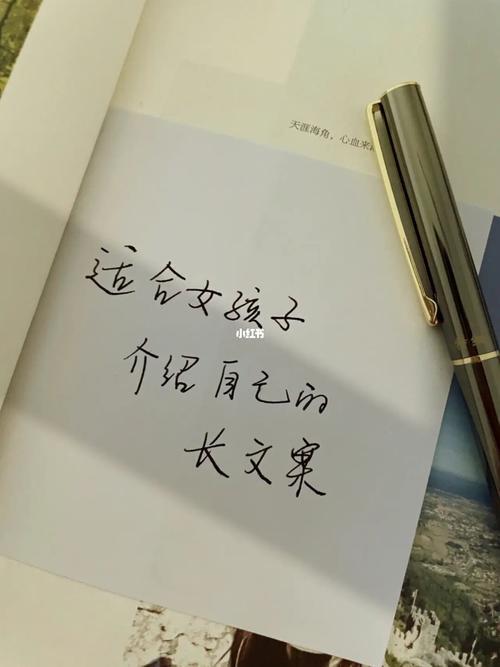 天涯海角，心血来
适合女孩子
小红书
介绍自己的
长文案